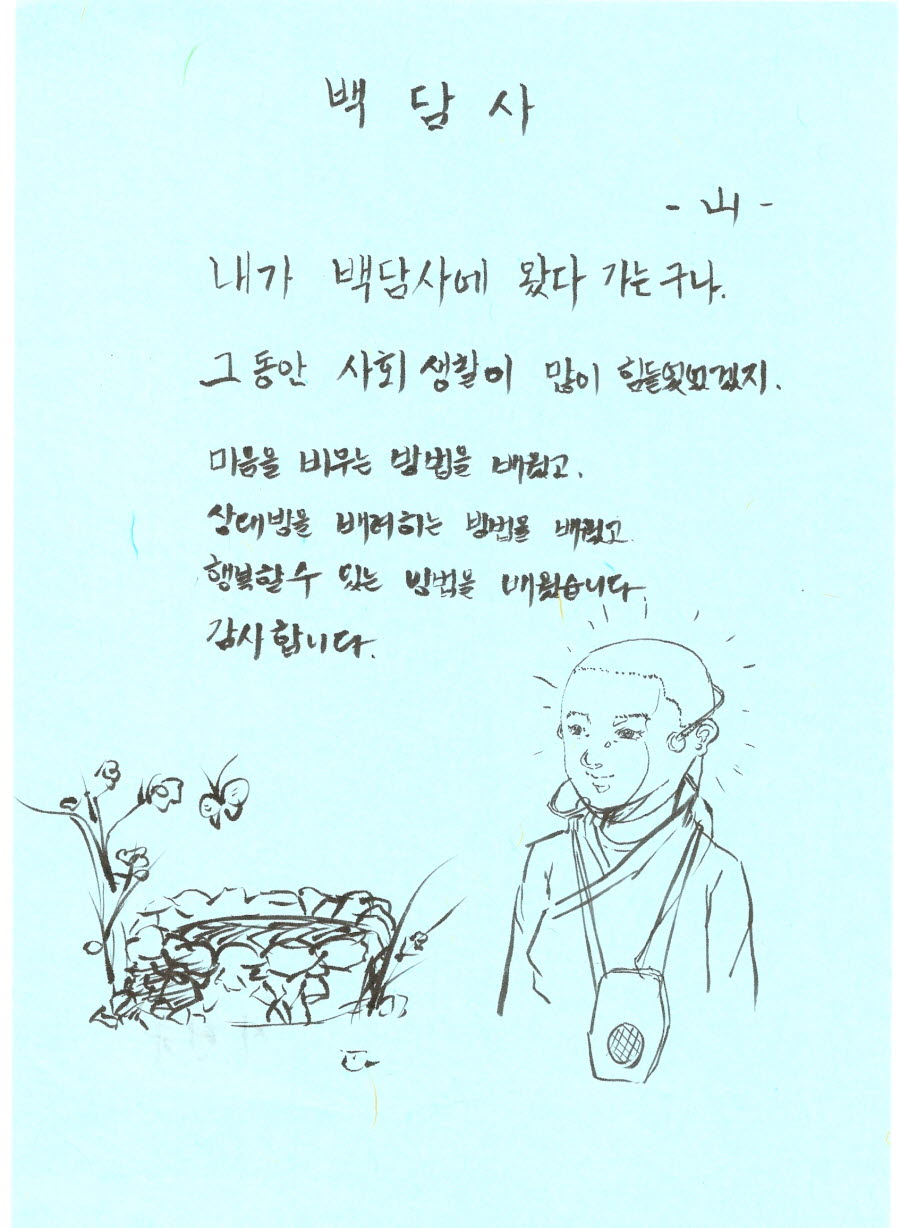 백 담 사
- 山 -
내가 백담사에 왔다 가는구나.
그동안 사회 생활이 많이
마음을 비우는 방법을 배웠고.
상대방을 배려하는 방법을 배웠고.
행복할 수 있는 방법을 배웠습니다.
감사합니다.